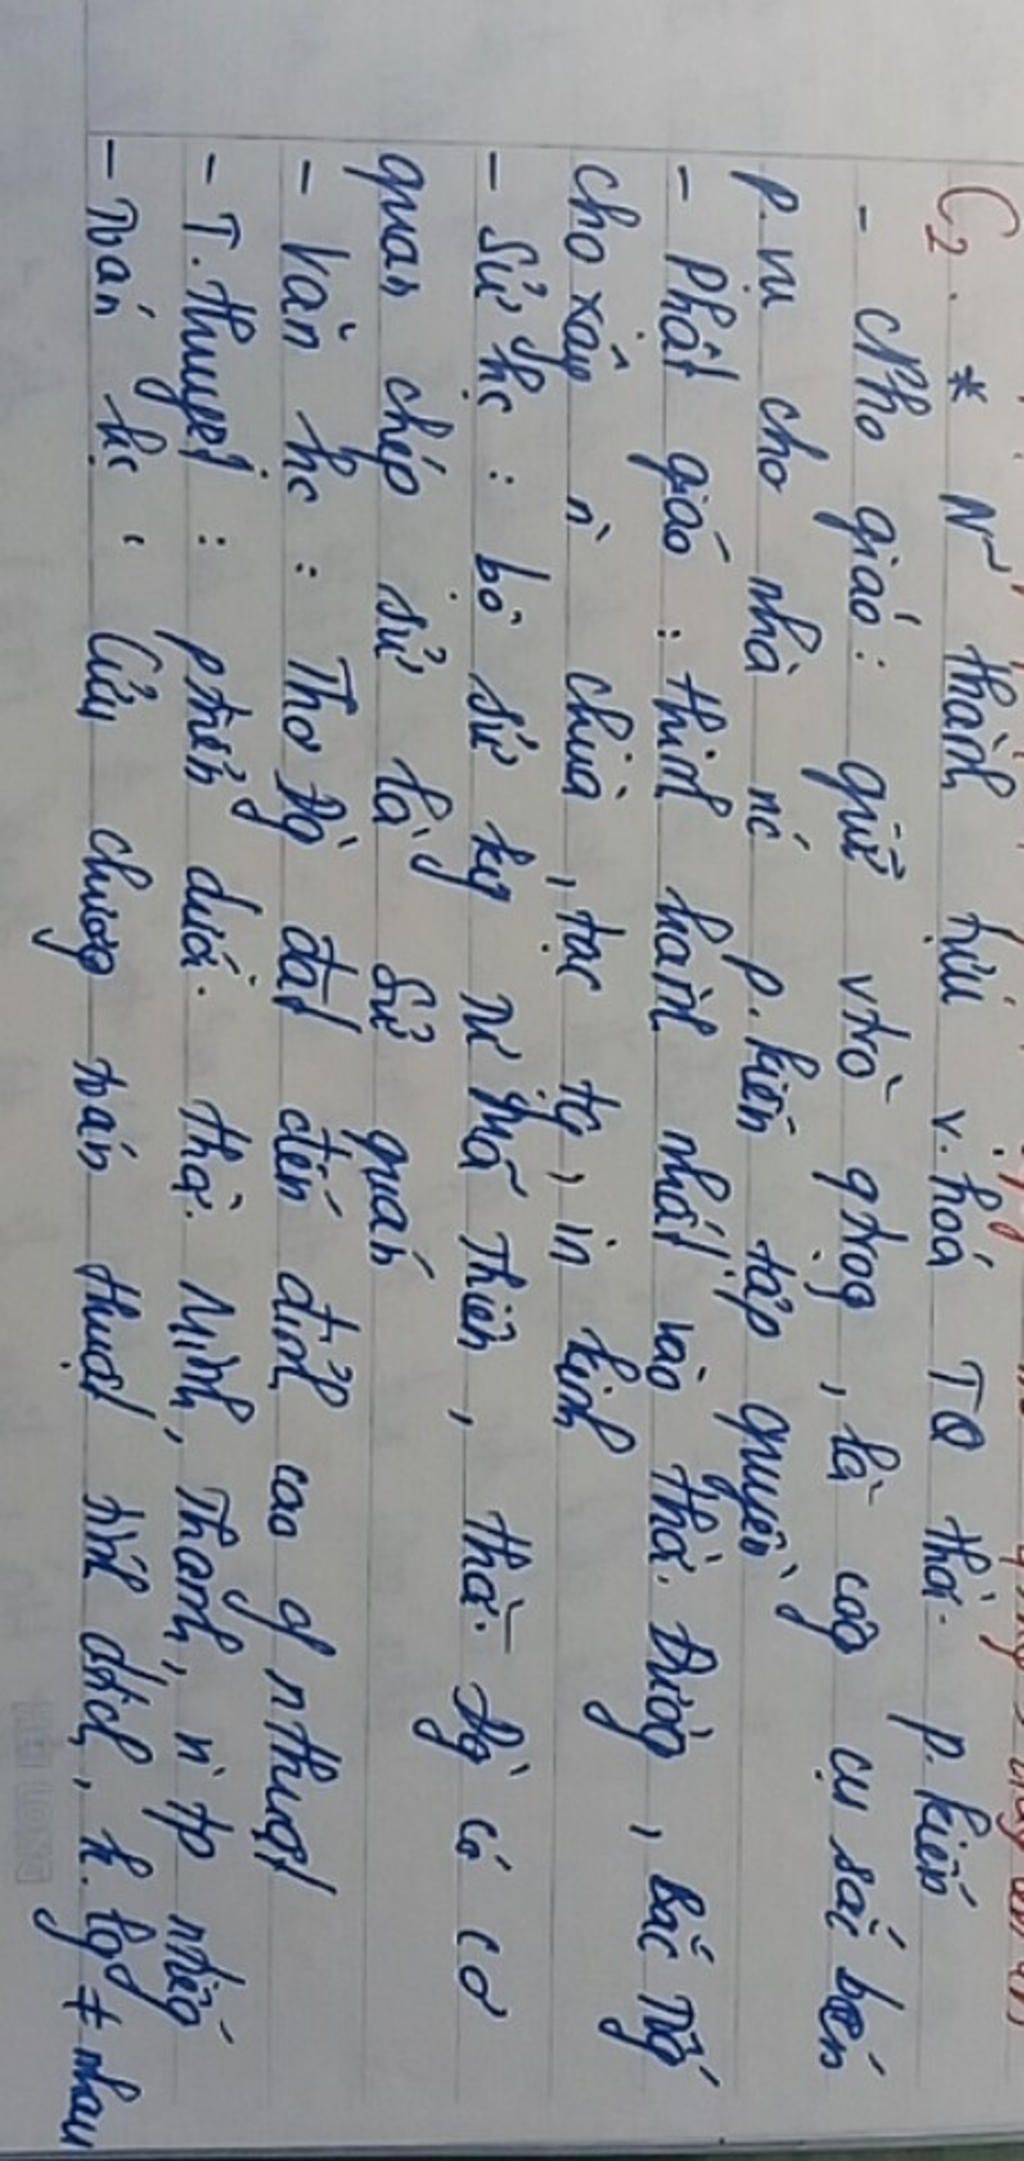 C2. * N~ thành tựu v.hoá TQ thờ. p.kiến
- Nho giáo: giữ vtrò qtrọg, là côg cụ sắc bén
p.vụ cho nhà nc p.kiến tập quyền
- Phật giáo: thịnh hành nhất vào thờ. Đườg, Bắc Tốg
cho xây n` chùa, tạc tg, in kinh
- Sử học: bộ sử ký Tư Mã Thiên, thờ. Đg` có cơ
quan chép sử là Sử quán
- Văn học: Thơ Đg` đạt đến đỉnh cao of nthuật
- T.thuyết: ptriển dưới thờ. Minh, Thanh, n` tp
- Toán học: Cửu chươg toán thuật tính dtích, h. ≠ nhau